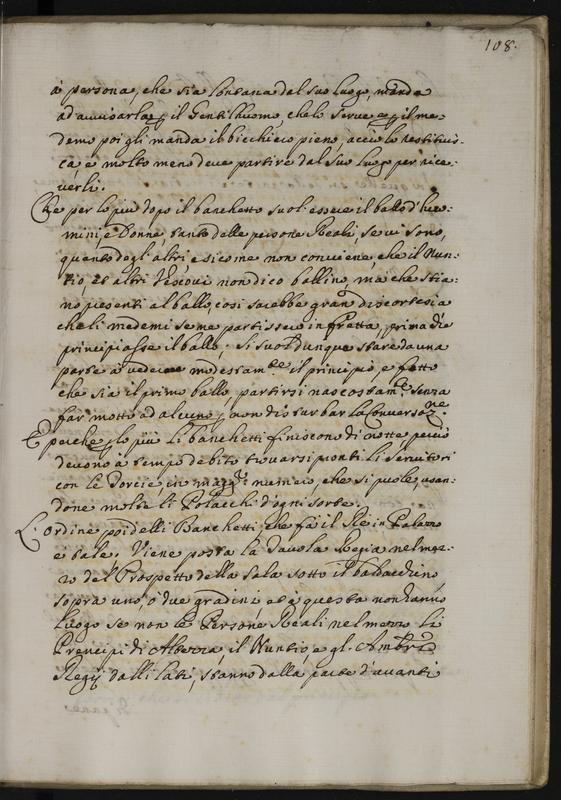 108.
à persona, che sia lontana dal suo luogo, manda
ad avvisarla p il Gentilhuomo, che lo serve, e p il me-
demo poi gli manda il bicchiero pieno, acciò lo restituis-
ca, e molto meno deve partire dal suo luogo per rice-
verli.
Che per lo più dopo il banchetto suol essere il ballo d'huo-
mini, e Donne, tanto delle persone Reali, se vi sono,
quanto degl'altri, e sicome non conviene, che il Nun-
tio, et altri Vescovi non dico ballino, mà che stia-
no presenti al ballo, così sarebbe gran discortesia
che li medemi se ne partissero in fretta, prima che
principiasse il ballo; si suol dunque stare da una
parte à vedere modestam.te il principio, e fatto
che sia il primo ballo partirsi nascostam.te senza
far motto ad alcuno p non disturbar la Conversaz.ne
E perche p lo più li banchetti finiscono di notte, perciò
devono à tempo debito trovarsi pronti li servitori
con le torcie, in magg.r numero, che si puole, usan-
done molte li Polacchi d'ogni sorte.
L'ordine poi delli Banchetti, che fà il Rè in Palazzo
è tale; Viene posta la Tavola Regia nel mez-
zo del Prospetto della Sala sotto il baldacchino
sopra uno, ò due gradini, et à questa non hanno
luogo se non le Persone Reali nel mezzo, li
Prencipi di Altezza, il Nuntio, e gl'Ambri
Regij dalli lati, stanno dalla parte d'avanti